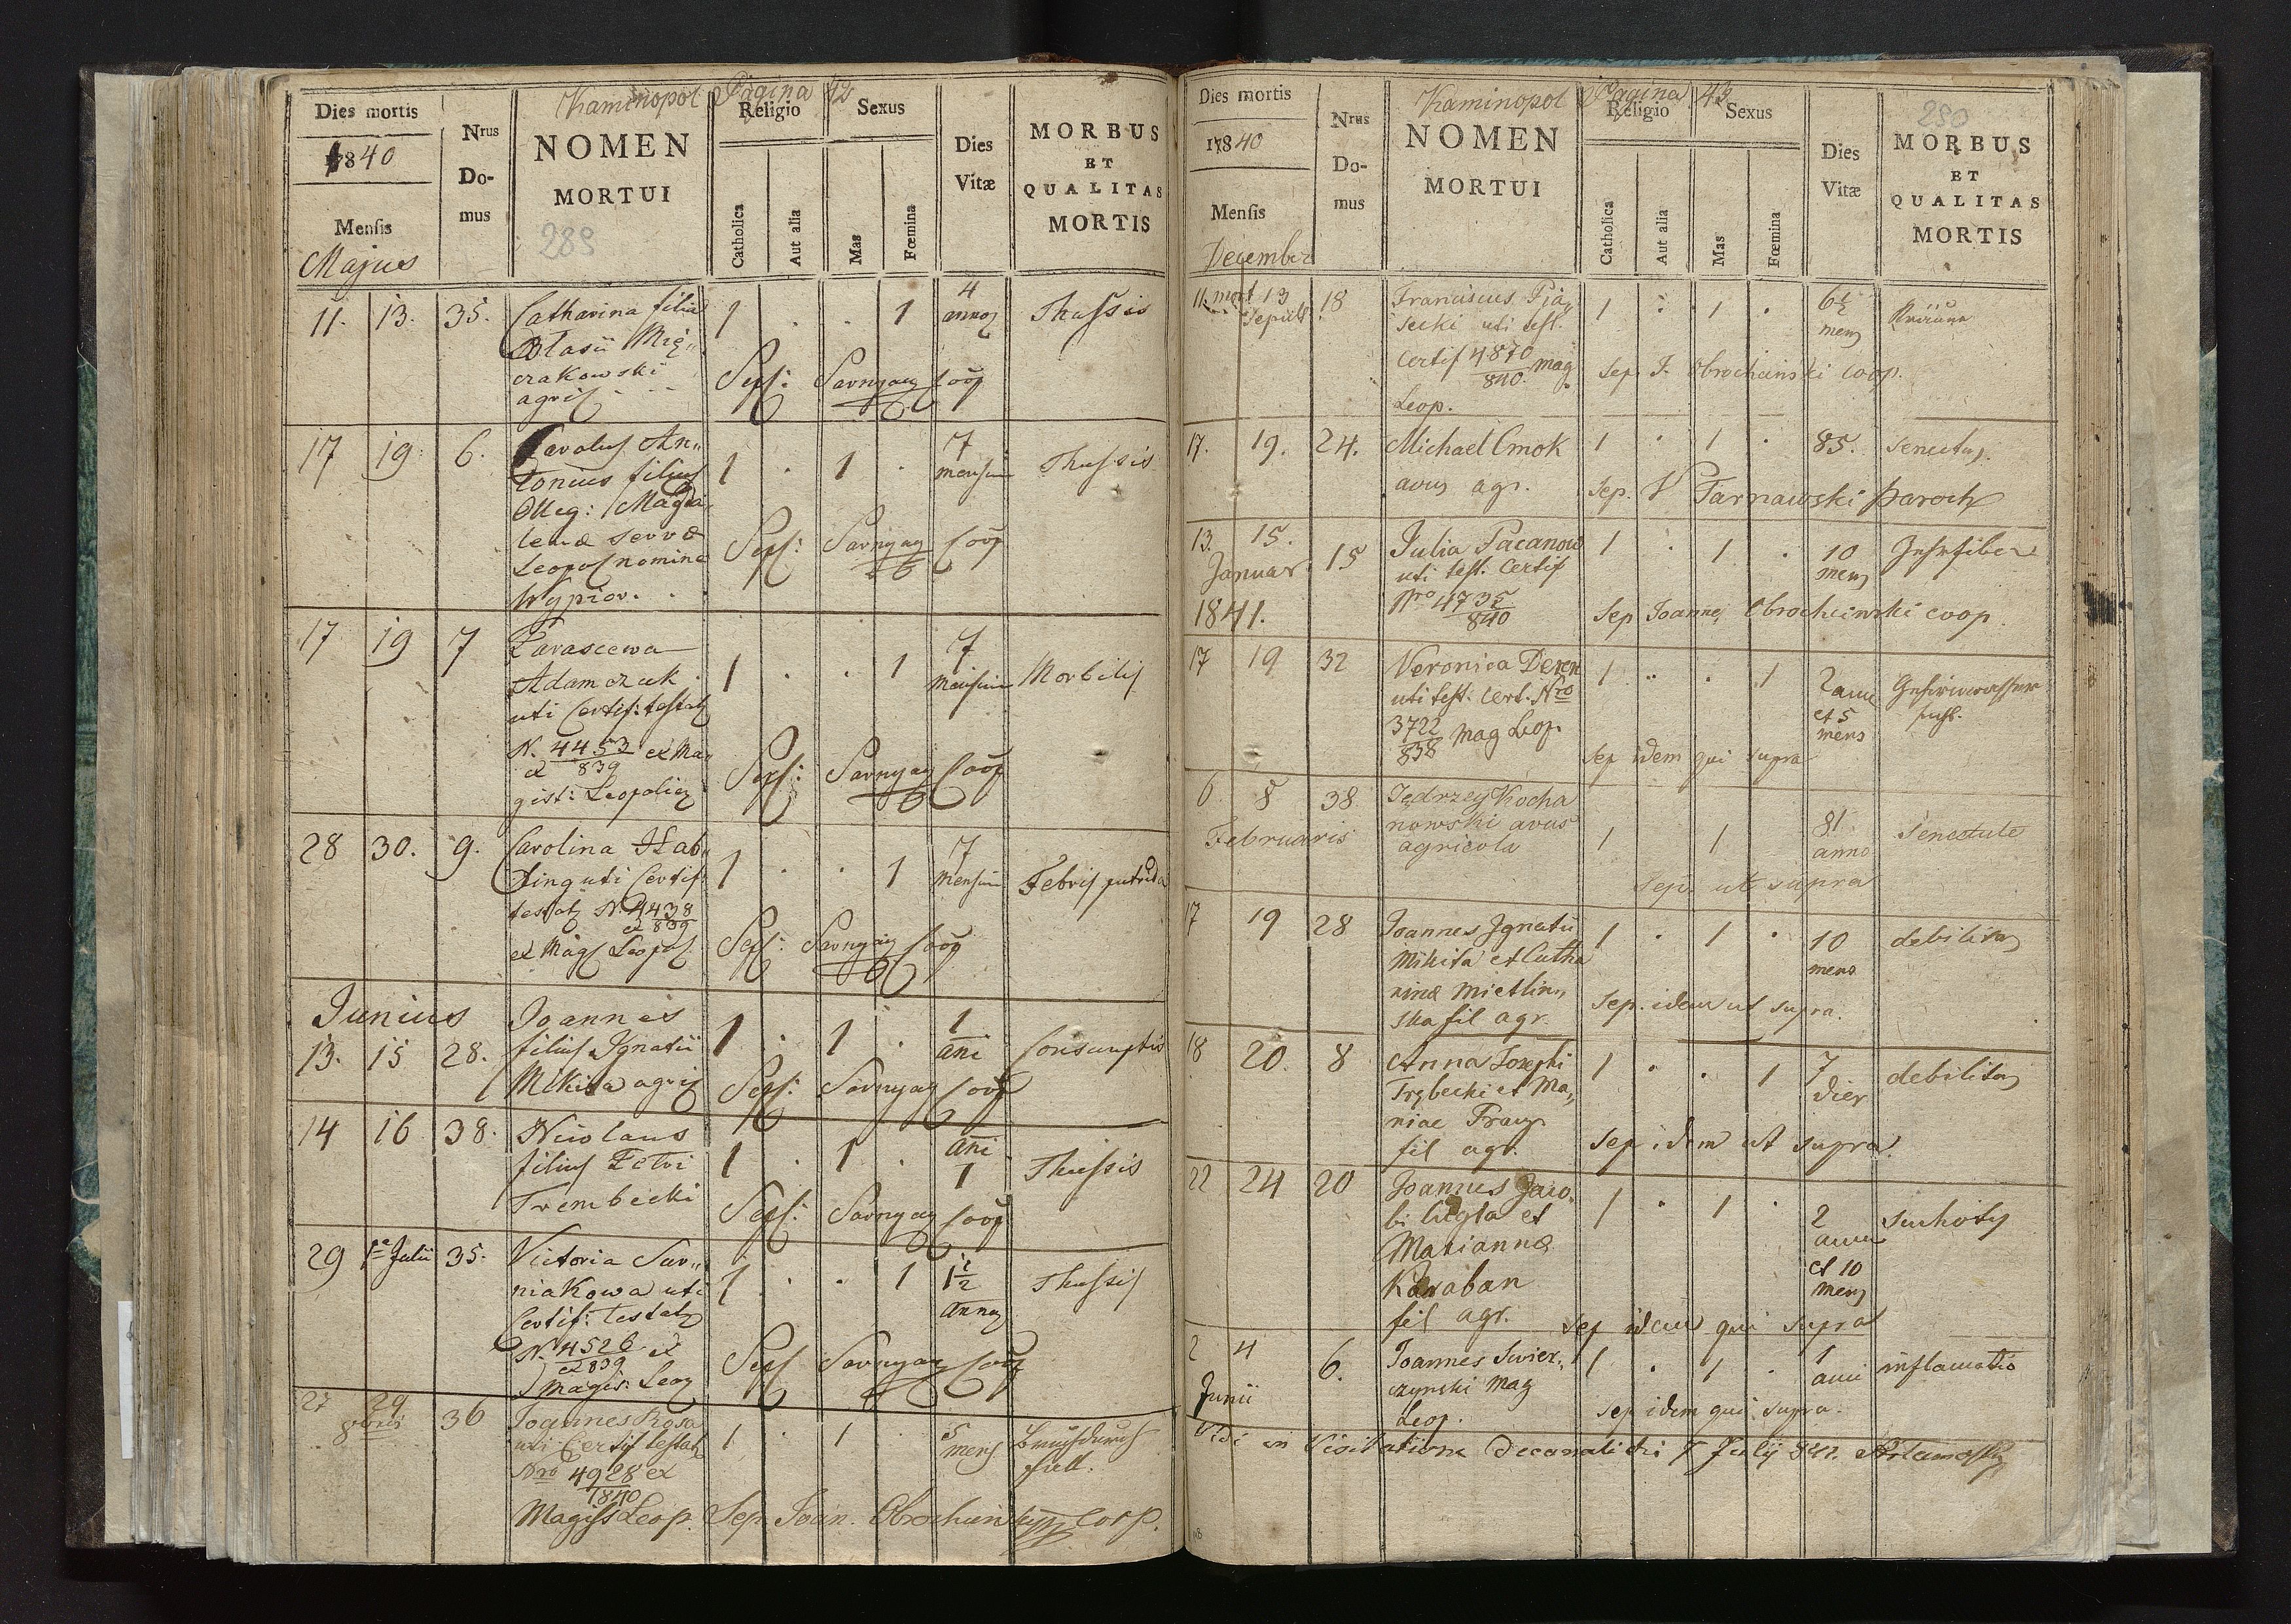 Kaminopol Pagina 42
Dies mortis
1840
Mensis
Majus
Nrus
Do-
mus
NOMEN
MORTUI
289
Religio
Catholica
Aut alia
Sexus
Mas
Fœmina
Dies
Vitæ
MORBUS
ET
QUALITAS
MORTIS
11. 13. 35. Catharina filia 1 . . 1 4 Thussis
annor
Blasii Mię„
czakowski
agric
Sepf: Sarnyay Coop
17 19 6. Carolus An„ 1 . 1 . 7 Thussis
tonius filius mensium
Illeg: Magda„
lenæ servæ
Leopol nomine
Wypior.
Sepf: Sarnyay Coop
17 19 7 Parascewa 1 . . 1 7 Morbilis
Adamczuk mensium
uti Certif: testatr
N. 4453 ex Ma„
839
gist: Leopoliens
Sepf: Sarnyay Coop
28 30. 9. Carolina 1 . . 1 7 Febris putrida
uti Certif: mensium
testatr N. 4438
ex 839
ex Mag Leopol
Sepf: Sarnyay Coop
Junius
13. 15 28. Joannes 1 . 1 . 1 Consumptio
filius Ignatii ani
Mikita agric
Sepf: Sarnyay Coop
14 16 38. Nicolaus 1 . 1 . ani Thussis
filius Petri 1
Trembecki
Sepf: Sarnyay Coop
29 1a Julii 35. Victoria Sar„ 1 . . 1 1 1/2 Thussis
niakowa uti annor
Certif: testatr
N. 4526 ex
ex 839
Magis: Leop
Sepf Sarnyay Coop
27 29 36 Joannes Rosa 1 . 1 . 5
8bris uti Certif testatr mens
Nro 4928 ex
1840
Magist Leop. Sep. Join. Obrochcinskyi Coop.
Kaminopol Pagina 43
Dies mortis
1840
Mensis
December
Nrus
Do-
mus
NOMEN
MORTUI
Religio
Catholica
Aut alia
Sexus
Mas
Fœmina
Dies
Vitæ
290
MORBUS
ET
QUALITAS
MORTIS
11. mort 13 18 Franciscus Pia„ 1 . 1 .
Sepult secki uti test. mens
Certif 4870 Mag
840.
Leop.
Sep. J. Obrochcinski coop.
17. 19. 24. Michael Cmok 1 . 1 . 85. senectus.
avus agr.
Sep. V Tarnawski Paroch
13. 15. 15 Julia Pacanow 1 . 1 . 10
Januar. uti test. Certif mens
1841. Nro 4735
840
Sep Joannes Obrochcinski coop.
17 19 32 Veronica Deren 1 . . 1 2 anni
uti test. Cert. Nro et 5
3722 Mag Leop. mens
838
Sep idem qui supra
6 8 38 Jędrzey Kocha 1 1 81 Senectute
Februaris nowski avus anno
agricola
Sep. ut supra
17 19 28 Joannes Ignatii 1 . 1 . 10 debilitas
Mikita et Catha mens
rinæ Mietlin„
ska fil agr.
Sep. idem ut supra.
18 20. 8 Anna Josephi 1 . . 1 7 debilitas
Trębecki et Ma„ dier
niae
fil agr.
Sep idem ut supra.
22 24 20 Joannes Jaco„ 1 . 1 . 2 suchoty
bi Cugla et anni
Mariannæ et 10
Karaban mens
fil agr.
Sep idem qui supra
2 4 6. Joannes Swier„ 1 . 1 . 1 inflamatio
Junii czynski Mag anni
Leop.
Sep idem qui supra.
Vidi in Visitatione Decanali die 7 Julij 841.